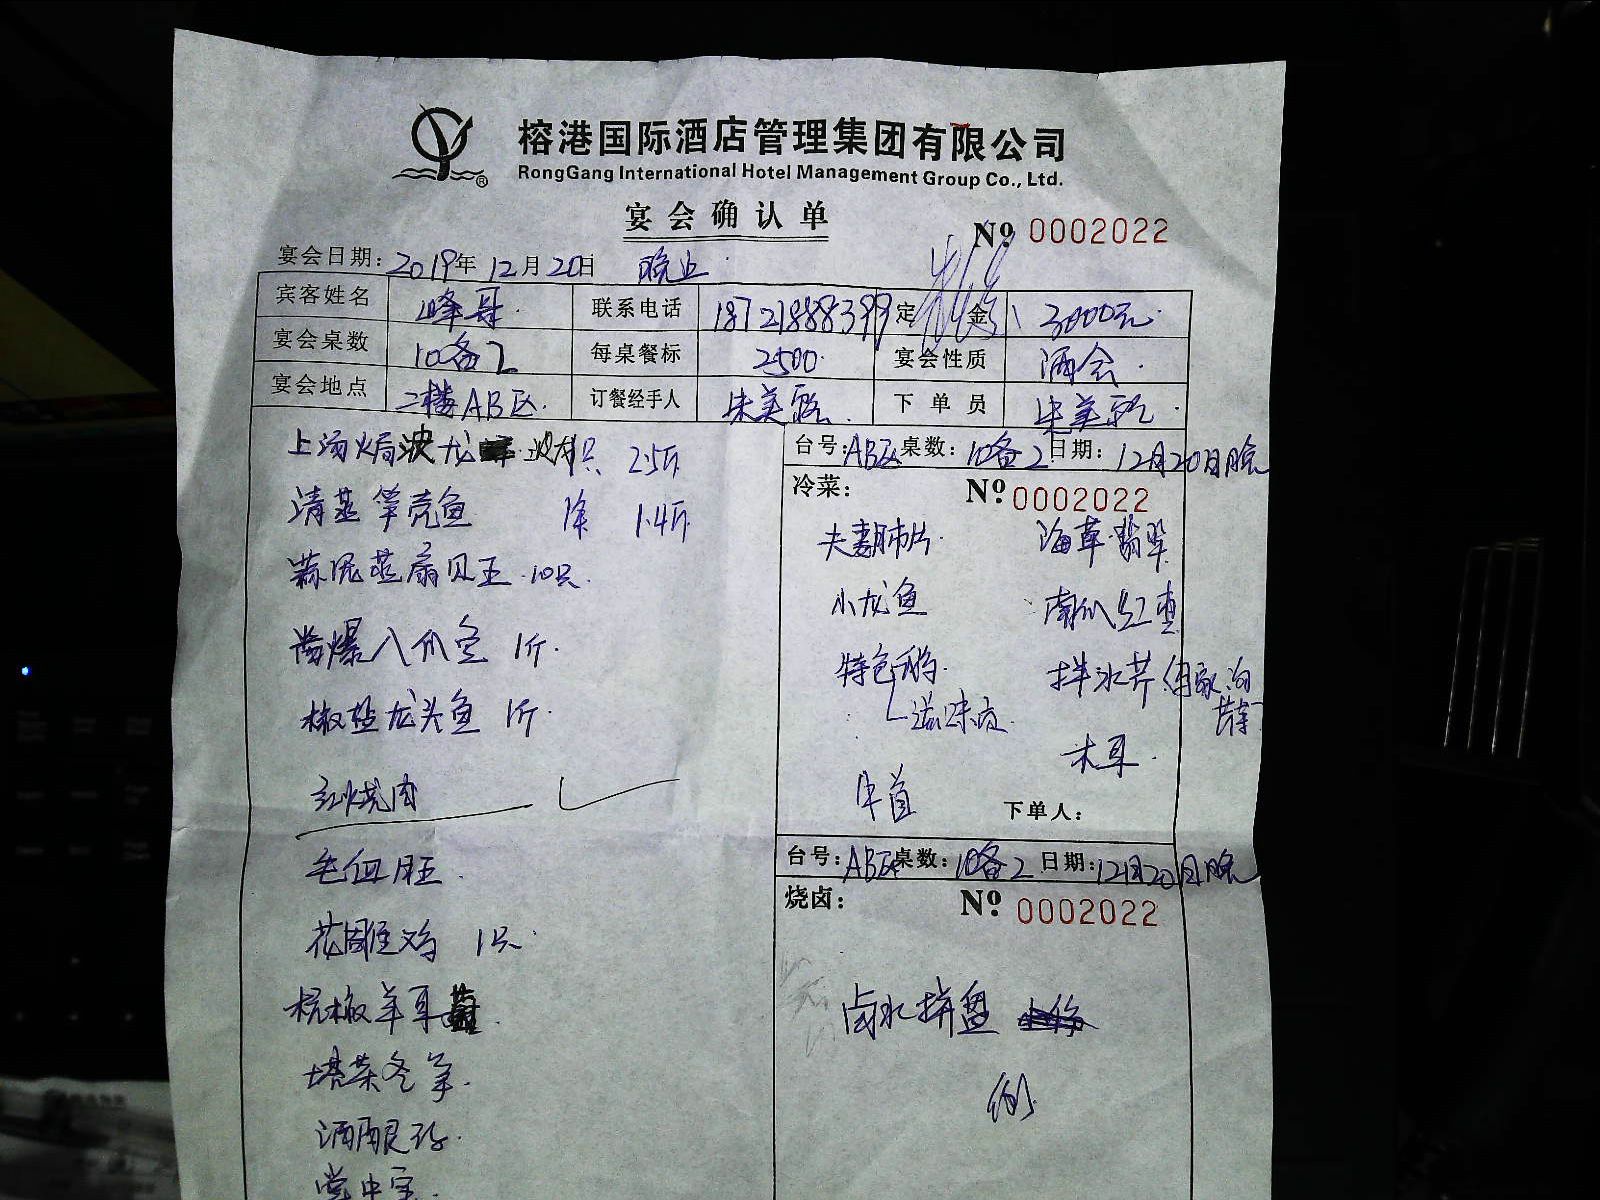 榕港国际酒店管理集团有限公司
RongGang International Hotel Management Group Co., Ltd.
宴会确认单
№ 0002022
宴会日期: 2019年12月20日 晚上
宾客姓名 峰哥 联系电话 18721888399 定金 3000元
宴会桌数 10备2 每桌餐标 2500 宴会性质 酒会
宴会地点 二楼AB区 订餐经手人 朱美 下单员 朱美
上汤焗波龙 25斤
清蒸笋壳鱼 1.4斤
蒜泥蒸扇贝王 10只
酱爆八爪鱼 1斤
椒盐龙头鱼 1斤
红烧肉
毛血旺
花雕鸡 1只
杭椒羊耳
塔菜冬笋
酒酿
堂中宝
台号: AB区 桌数: 10备2 日期: 12月20日晚
冷菜: № 0002022
夫妻肺片 海草翡翠
小龙鱼 南瓜红枣
特色 拌水芹
滋味
木耳
下单人:
台号: AB区 桌数: 10备2 日期: 12月20日晚
烧卤: № 0002022
卤水拼盘
例